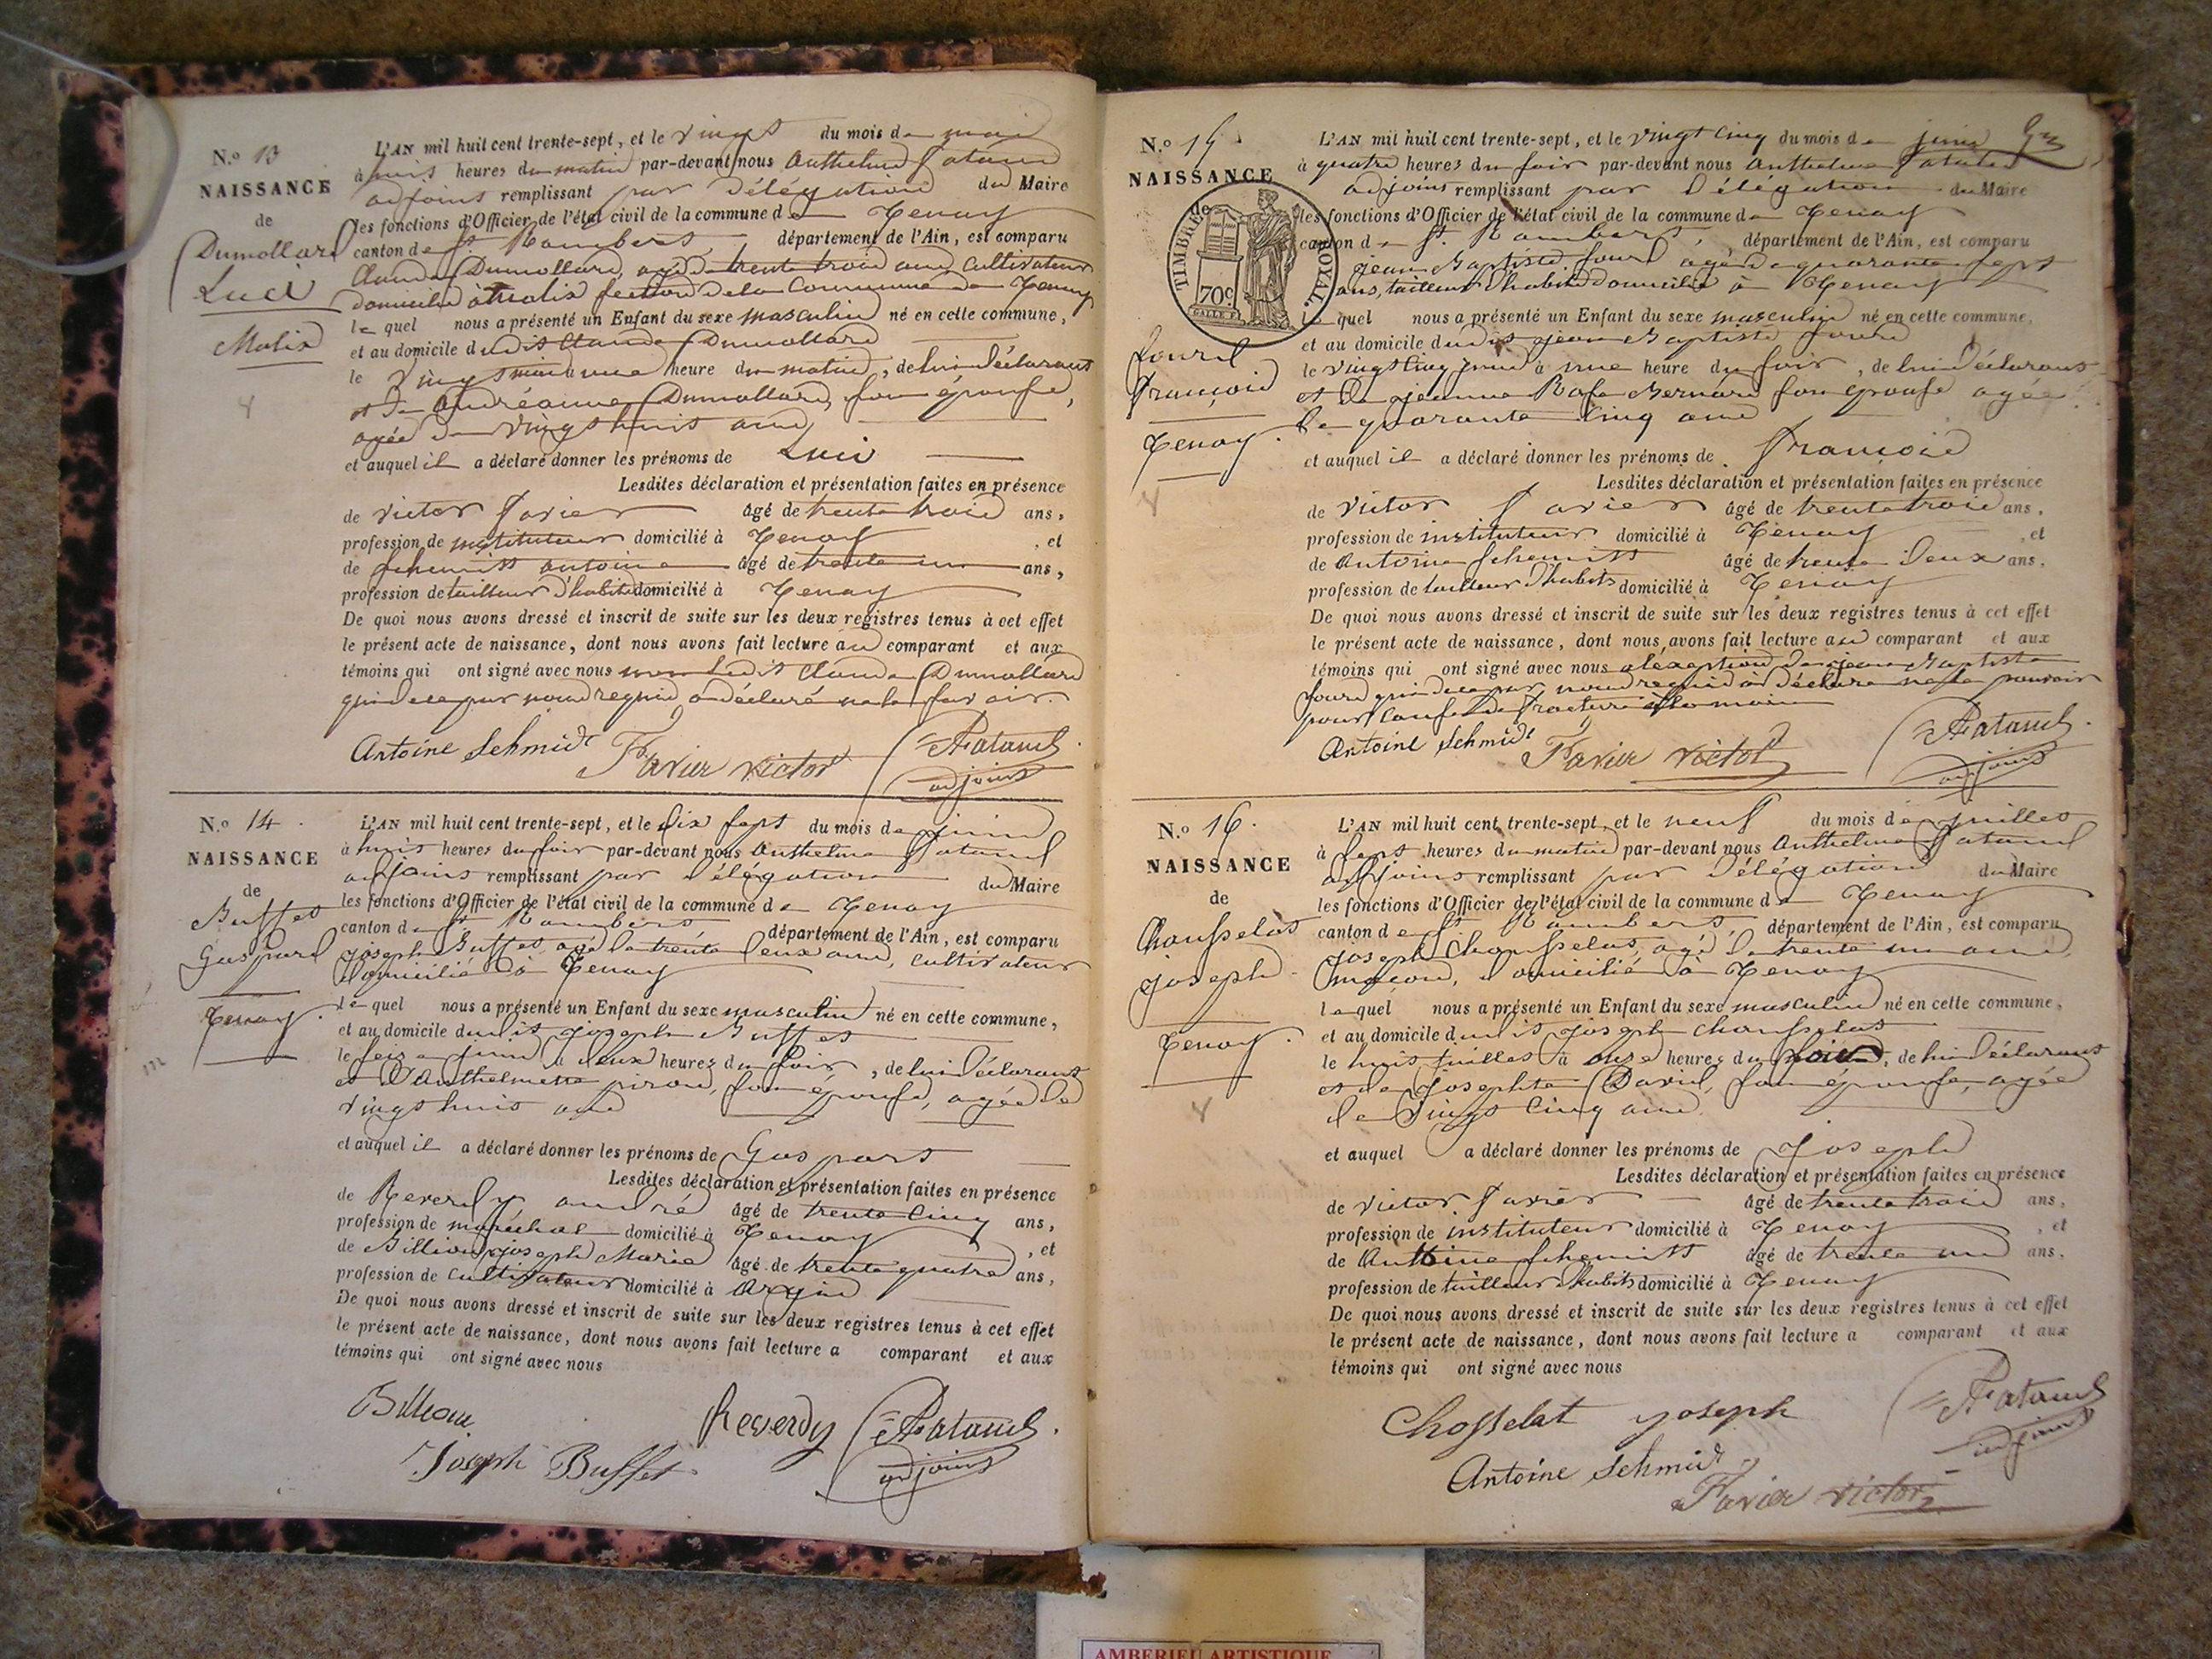 N.o 13
NAISSANCE
de
Dumollard
Luci
Malix
L'AN mil huit cent trente-sept, et le vingt du mois de mai
à huit heures du matin par-devant nous Anthelme Patand
adjoint remplissant par Délégation du Maire
les fonctions d'Officier de l'état civil de la commune de Tenay
canton de St Rambert, département de l'Ain, est comparu
Claude Dumollard, agé de trente trois ans, cultivateur
domicilié à Malix section de la Commune de Tenay
lequel nous a présenté un Enfant du sexe masculin né en cette commune,
et au domicile dudit Claude Dumollard
le vingt mai à une heure du matin, de lui Déclarant
et de Andréanne Dumollard, son épouse,
agée de vingt huit ans,
et auquel il a déclaré donner les prénoms de Luci
Lesdites déclaration et présentation faites en présence
de victor favier âgé de trente trois ans,
profession de instituteur domicilié à Tenay, et
de schemitt antoine âgé de trente un ans,
profession de tailleur d'habits domicilié à Tenay
De quoi nous avons dressé et inscrit de suite sur les deux registres tenus à cet effet
le présent acte de naissance, dont nous avons fait lecture au comparant et aux
témoins qui ont signé avec nous non ledit Claude Dumollard
qui de ce par nous requis a déclaré ne le savoir.
Antoine Schmidt Favier victor Patand
adjoint
N.o 14
NAISSANCE
de
Buffet
Gaspard
Tenay
L'AN mil huit cent trente-sept, et le dix sept du mois de juin
à huit heures du soir par-devant nous Anthelme Patand
adjoint remplissant par délégation du Maire
les fonctions d'Officier de l'état civil de la commune de Tenay
canton de St Rambert département de l'Ain, est comparu
joseph Buffet, agé de trente deux ans, cultivateur
domicilié à Tenay
lequel nous a présenté un Enfant du sexe masculin né en cette commune,
et au domicile dudit joseph Buffet
le seize juin à deux heures du soir, de lui Déclarant
et d'Anthelmette piron, son épouse, agée de
vingt huit ans
et auquel il a déclaré donner les prénoms de Gaspart
Lesdites déclaration et présentation faites en présence
de Reverdy andré âgé de trente cinq ans,
profession de maréchal domicilié à Tenay, et
de Billion joseph Marie âgé de trente quatre ans,
profession de cultivateur domicilié à
De quoi nous avons dressé et inscrit de suite sur les deux registres tenus à cet effet
le présent acte de naissance, dont nous avons fait lecture a comparant et aux
témoins qui ont signé avec nous
Billion Reverdy Patand
Joseph Buffet adjoint
N.o 15
NAISSANCE
de
TIMBRE ROYAL.
70c
françois
Tenay
L'AN mil huit cent trente-sept, et le vingt cinq du mois de juin
à quatre heures du soir par-devant nous Anthelme Patand
adjoint remplissant par Délégation du Maire
les fonctions d'Officier de l'état civil de la commune de Tenay
canton de St. Rambert, département de l'Ain, est comparu
jean Baptiste agé de quarante sept
ans, tailleur d'habits domicilié à Tenay
lequel nous a présenté un Enfant du sexe masculin né en cette commune,
et au domicile dudit jean Baptiste
le vingt cinq juin à une heure du soir, de lui Déclarant
et de jeanne Rose Bernard son épouse agée
de quarante cinq ans
et auquel il a déclaré donner les prénoms de françois
Lesdites déclaration et présentation faites en présence
de Victor favier âgé de trente trois ans,
profession de instituteur domicilié à Tenay, et
de Antoine schemitt âgé de trente deux ans,
profession de tailleur d'habits domicilié à Tenay
De quoi nous avons dressé et inscrit de suite sur les deux registres tenus à cet effet
le présent acte de naissance, dont nous avons fait lecture au comparant et aux
témoins qui ont signé avec nous a l'exeption de jean Baptiste
qui de ce par nous requis a déclaré ne le pouvoir
pour cause de fracture à la main
Antoine Schmidt Favier victor Patand
adjoint
N.o 16.
NAISSANCE
de
Chousselat
joseph
Tenay
L'AN mil huit cent trente-sept, et le neuf du mois de juillet
à sept heures du matin par-devant nous Anthelme Patand
adjoint remplissant par Délégation du Maire
les fonctions d'Officier de l'état civil de la commune de Tenay
canton de St Rambert, département de l'Ain, est comparu
joseph Chousselat, agé de trente un ans,
maçon, domicilié à Tenay
lequel nous a présenté un Enfant du sexe masculin né en cette commune,
et au domicile dudit joseph chousselat
le huit juillet à onze heures du soir, de lui Déclarant
et de josephte David, son épouse, agée
de vingt cinq ans.
et auquel a déclaré donner les prénoms de joseph
Lesdites déclaration et présentation faites en présence
de victor favier âgé de trente trois ans,
profession de instituteur domicilié à Tenay, et
de Antoine schemitt âgé de trente un ans.
profession de tailleur d'habits domicilié à Tenay
De quoi nous avons dressé et inscrit de suite sur les deux registres tenus à cet effet
le présent acte de naissance, dont nous avons fait lecture a comparant et aux
témoins qui ont signé avec nous
Chosselat joseph Patand
Antoine Schmidt adjoint
Favier victor
AMBERIEU ARTISTIQUE